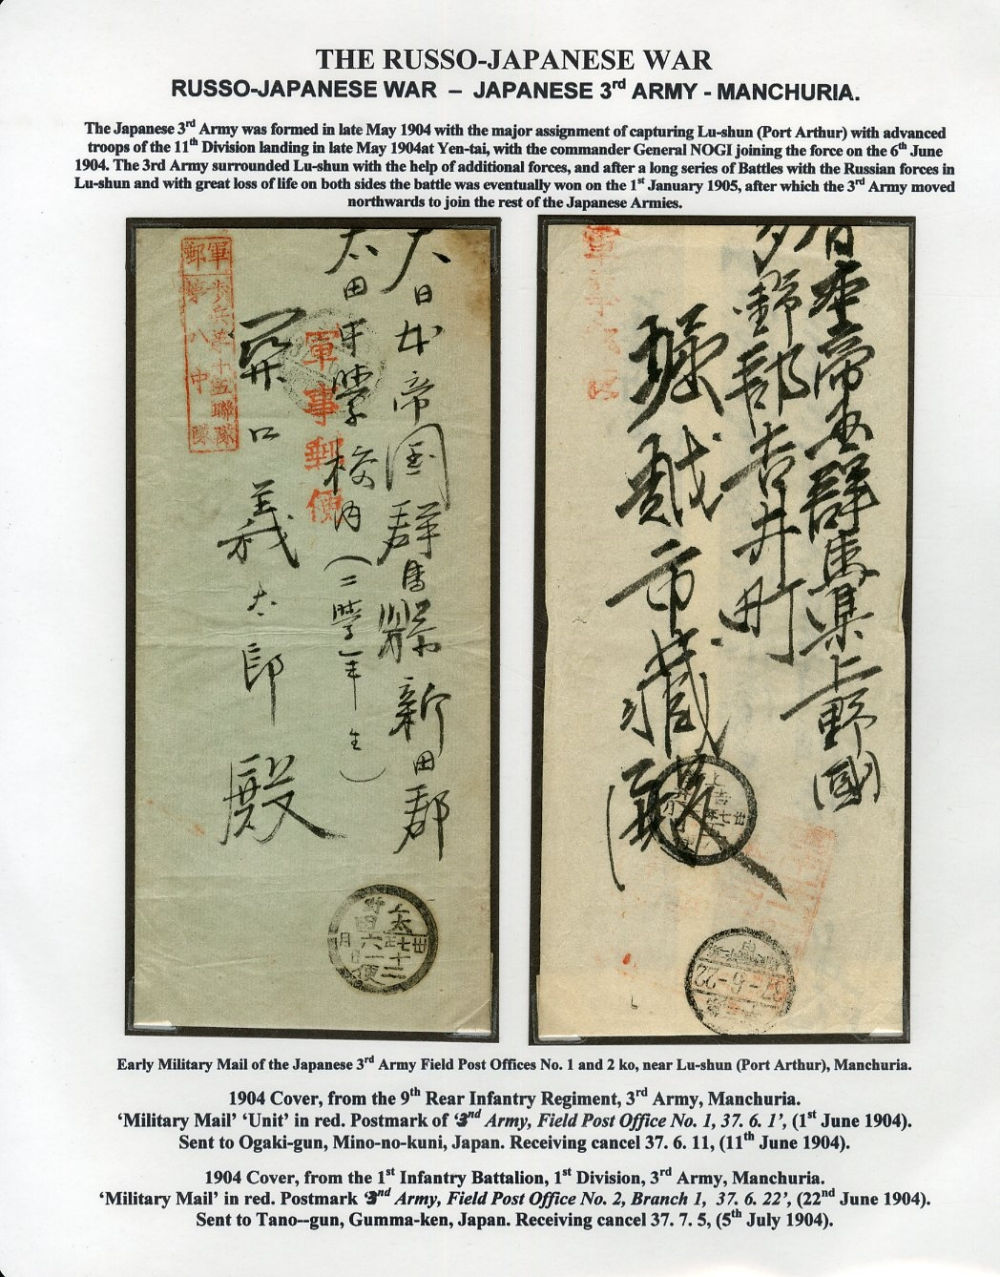 THE RUSSO-JAPANESE WAR
RUSSO-JAPANESE WAR – JAPANESE 3rd ARMY - MANCHURIA.
The Japanese 3rd Army was formed in late May 1904 with the major assignment of capturing Lu-shun (Port Arthur) with advanced
troops of the 11th Division landing in late May 1904at Yen-tai, with the commander General NOGI joining the force on the 6th June
1904. The 3rd Army surrounded Lu-shun with the help of additional forces, and after a long series of Battles with the Russian forces in
Lu-shun and with great loss of life on both sides the battle was eventually won on the 1st January 1905, after which the 3rd Army moved
northwards to join the rest of the Japanese Armies.
大日本帝国群馬縣新田郡
太田中學校内(二學年生)
軍事郵便
義太郎殿
軍事郵便
歩兵第十五聯隊
第八中隊
日本帝国群馬県上野國
多野郡吉井町
堀越市藏殿
37-6-22
Early Military Mail of the Japanese 3rd Army Field Post Offices No. 1 and 2 ko, near Lu-shun (Port Arthur), Manchuria.
1904 Cover, from the 9th Rear Infantry Regiment, 3rd Army, Manchuria.
‘Military Mail’ ‘Unit’ in red. Postmark of ‘3nd Army, Field Post Office No. 1, 37. 6. 1’, (1st June 1904).
Sent to Ogaki-gun, Mino-no-kuni, Japan. Receiving cancel 37. 6. 11, (11th June 1904).
1904 Cover, from the 1st Infantry Battalion, 1st Division, 3rd Army, Manchuria.
‘Military Mail’ in red. Postmark ‘3nd Army, Field Post Office No. 2, Branch 1, 37. 6. 22’, (22nd June 1904).
Sent to Tano--gun, Gumma-ken, Japan. Receiving cancel 37. 7. 5, (5th July 1904).